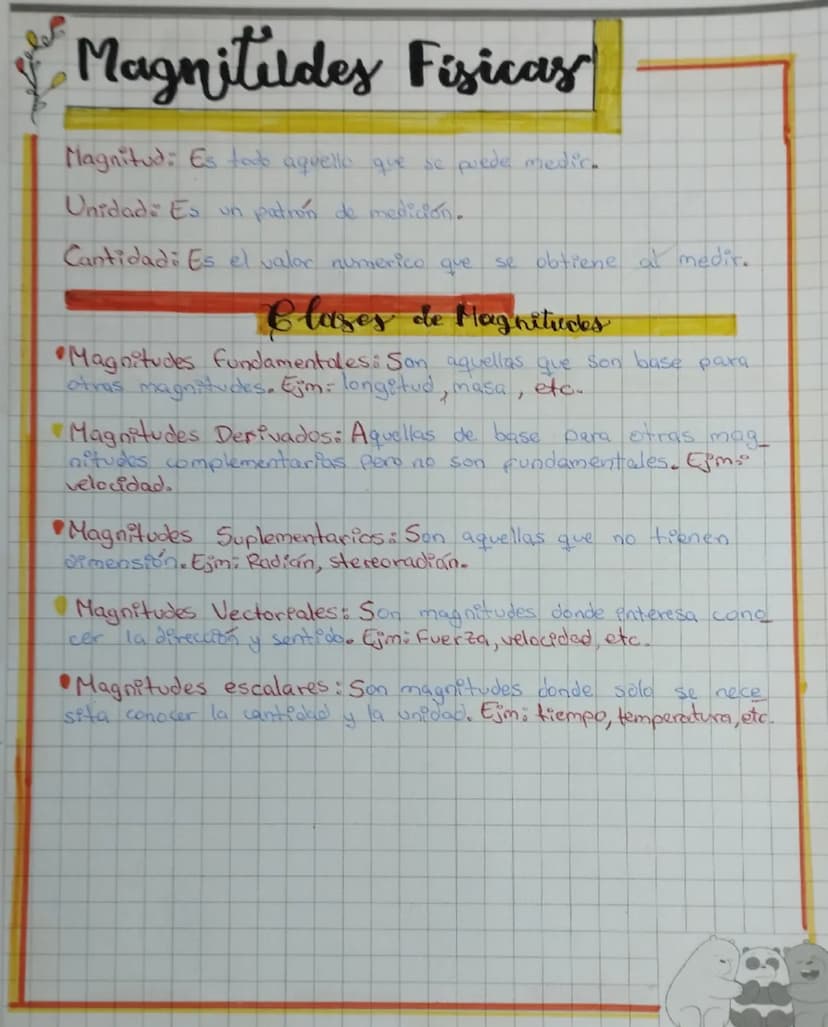 Magnitudes Físicas
Magnitud: Es todo aquello que se puede medir.
Unidad: Es un patrón de medición.
Cantidad: Es el valor numerico que se obtiene al medir.
Clases de Magnitudes
•Magnitudes fundamentales: Son aquellas que son base para
otras magnitudes. Ejm: longetud, masa, etc.
•Magnitudes Derivados: Aquellas de base para otras mag_
nitudes complementarias pero no son fundamentales. Ejm:
velocidad.
•Magnitudes Suplementarios: Son aquellas que no tienen
dimensión. Ejm: Radián, stereoradián.
•Magnitudes Vectoreales: Son magnitudes donde enteresa cono
cer la dirección y sentido. Ejm: Fuerza, velocided, etc.
•Magnitudes escalares: Son magnitudes donde solo se nece
sita conocer la cantidad y la unidad. Ejm: tiempo, temperatura, etc.